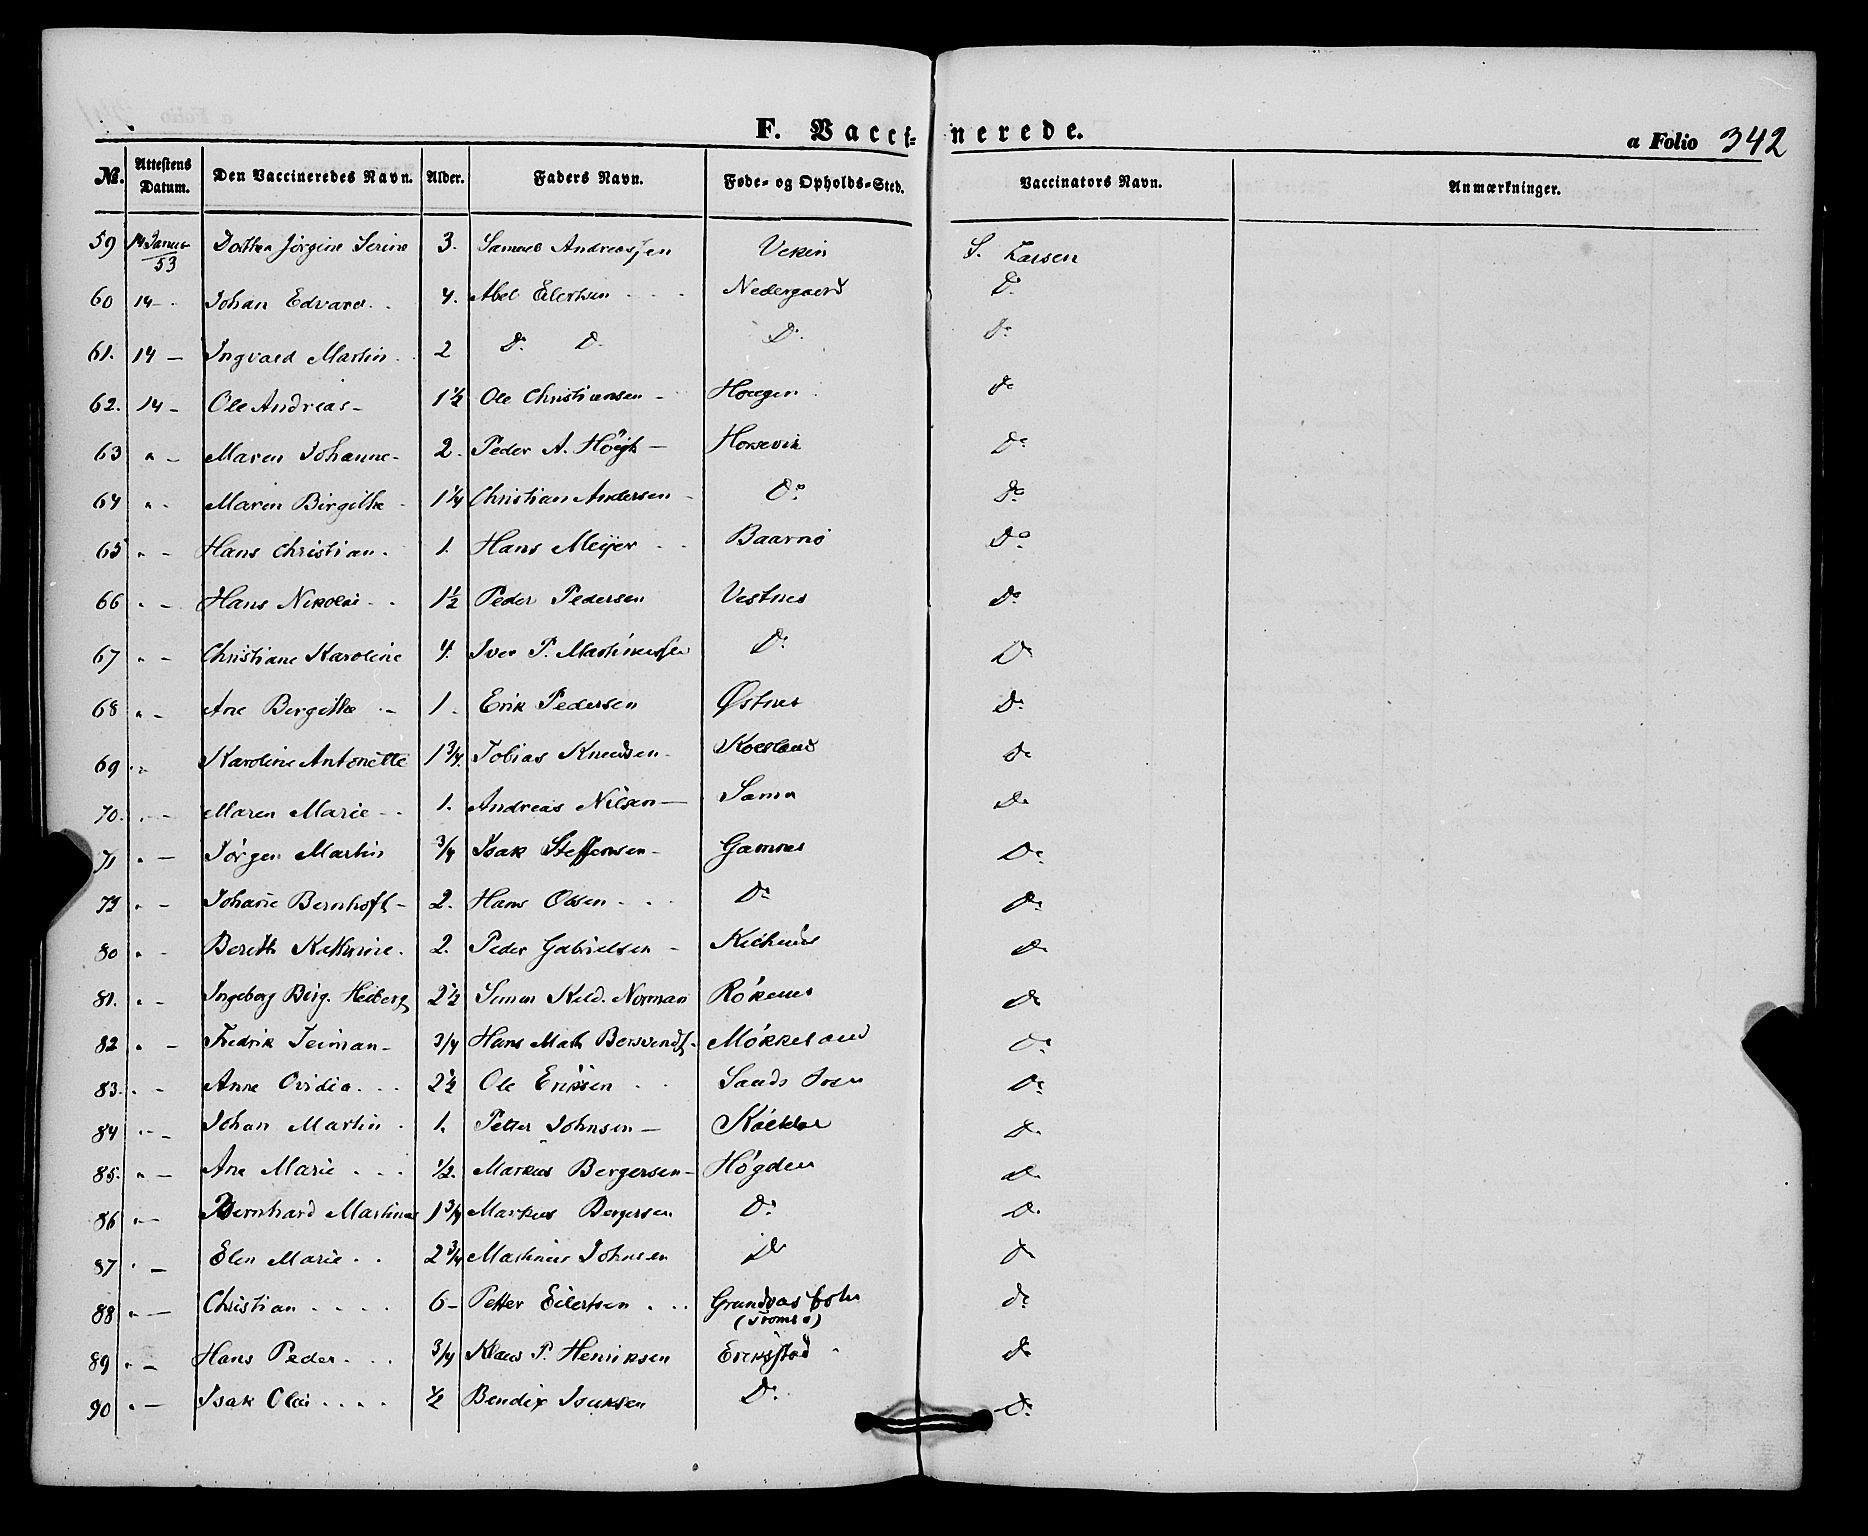 F. Vacci- nerede.
a Folio 342
No. Attestens Datum. Den Vaccineredes Navn. Alder. Faders Navn. Føde- og Opholds-Sted. Vaccinators Navn. Anmærkninger.
59 14 Januar 53 Dorthea Jørgine Serine 3. Samuel Andreassen Vekin S. Larsen
60 14 - Johan Edvard 4. Abel Eilertsen Nedergaard Do
61. 14 - Ingvald Martin 2 Do Do Do Do
62. 14 - Ole Andreas - 1½ Ole Christiansen - Hougen Do
63 " - Maren Johanne - 2. Peder A. Høigh - Horsevik Do
64 " - Maren Birgithe 1¼ Christian Andersen - Do Do
65 " - Hans Christian. 1. Hans Meÿer Baarnø Do
66 " - Hans Nikolai 1½ Peder Pedersen Vestnes Do
67 " - Christiane Karoline 4. Iver P. Martinussen Do Do
68 " - Ane Bergithe 1. Erik Pedersen Østnes Do
69 " - Karoline Antonette 1¾. Tobias Knudsen - Do
70. " - Maren Marie 1. Andreas Nilsen - Sama Do
71 " - Jørgen Martin ¾ Isak Steffensen - Gamnes Do
79 " - Johan Bernhoft - 2. Hans Olsen Do Do
80 " - Bereth Kathrine. 2. Peder Gabrielsen - Do
81. " - Ingeborg Birg. Heiberg 2½ Simon Kild. Norman Rökenes Do
82 " - Fredrik Teiman - ¾ Hans Math Bersvendt. - Mökkeland Do
83. " - Anne Ovidia 2½ Ole Eriksen Sands Do
84 " - Johan Martin 1. Petter Johnsen - Do
85. " - Ane Marie ½. Markus Bergersen - Högden Do
86 " - Bernhard Martinus 1¾ Markus Bergersen Do Do
87 " - Elen Marie 2¾ Martinus Johnsen Do Do
88 " - Christian 6 - Petter Eilertsen (Tromsø) Do
89 " - Hans Peder ¾ Klaus P. Henriksen Erikstad Do
90 " - Isak Olai ½ Bendix Isaksen Do Do